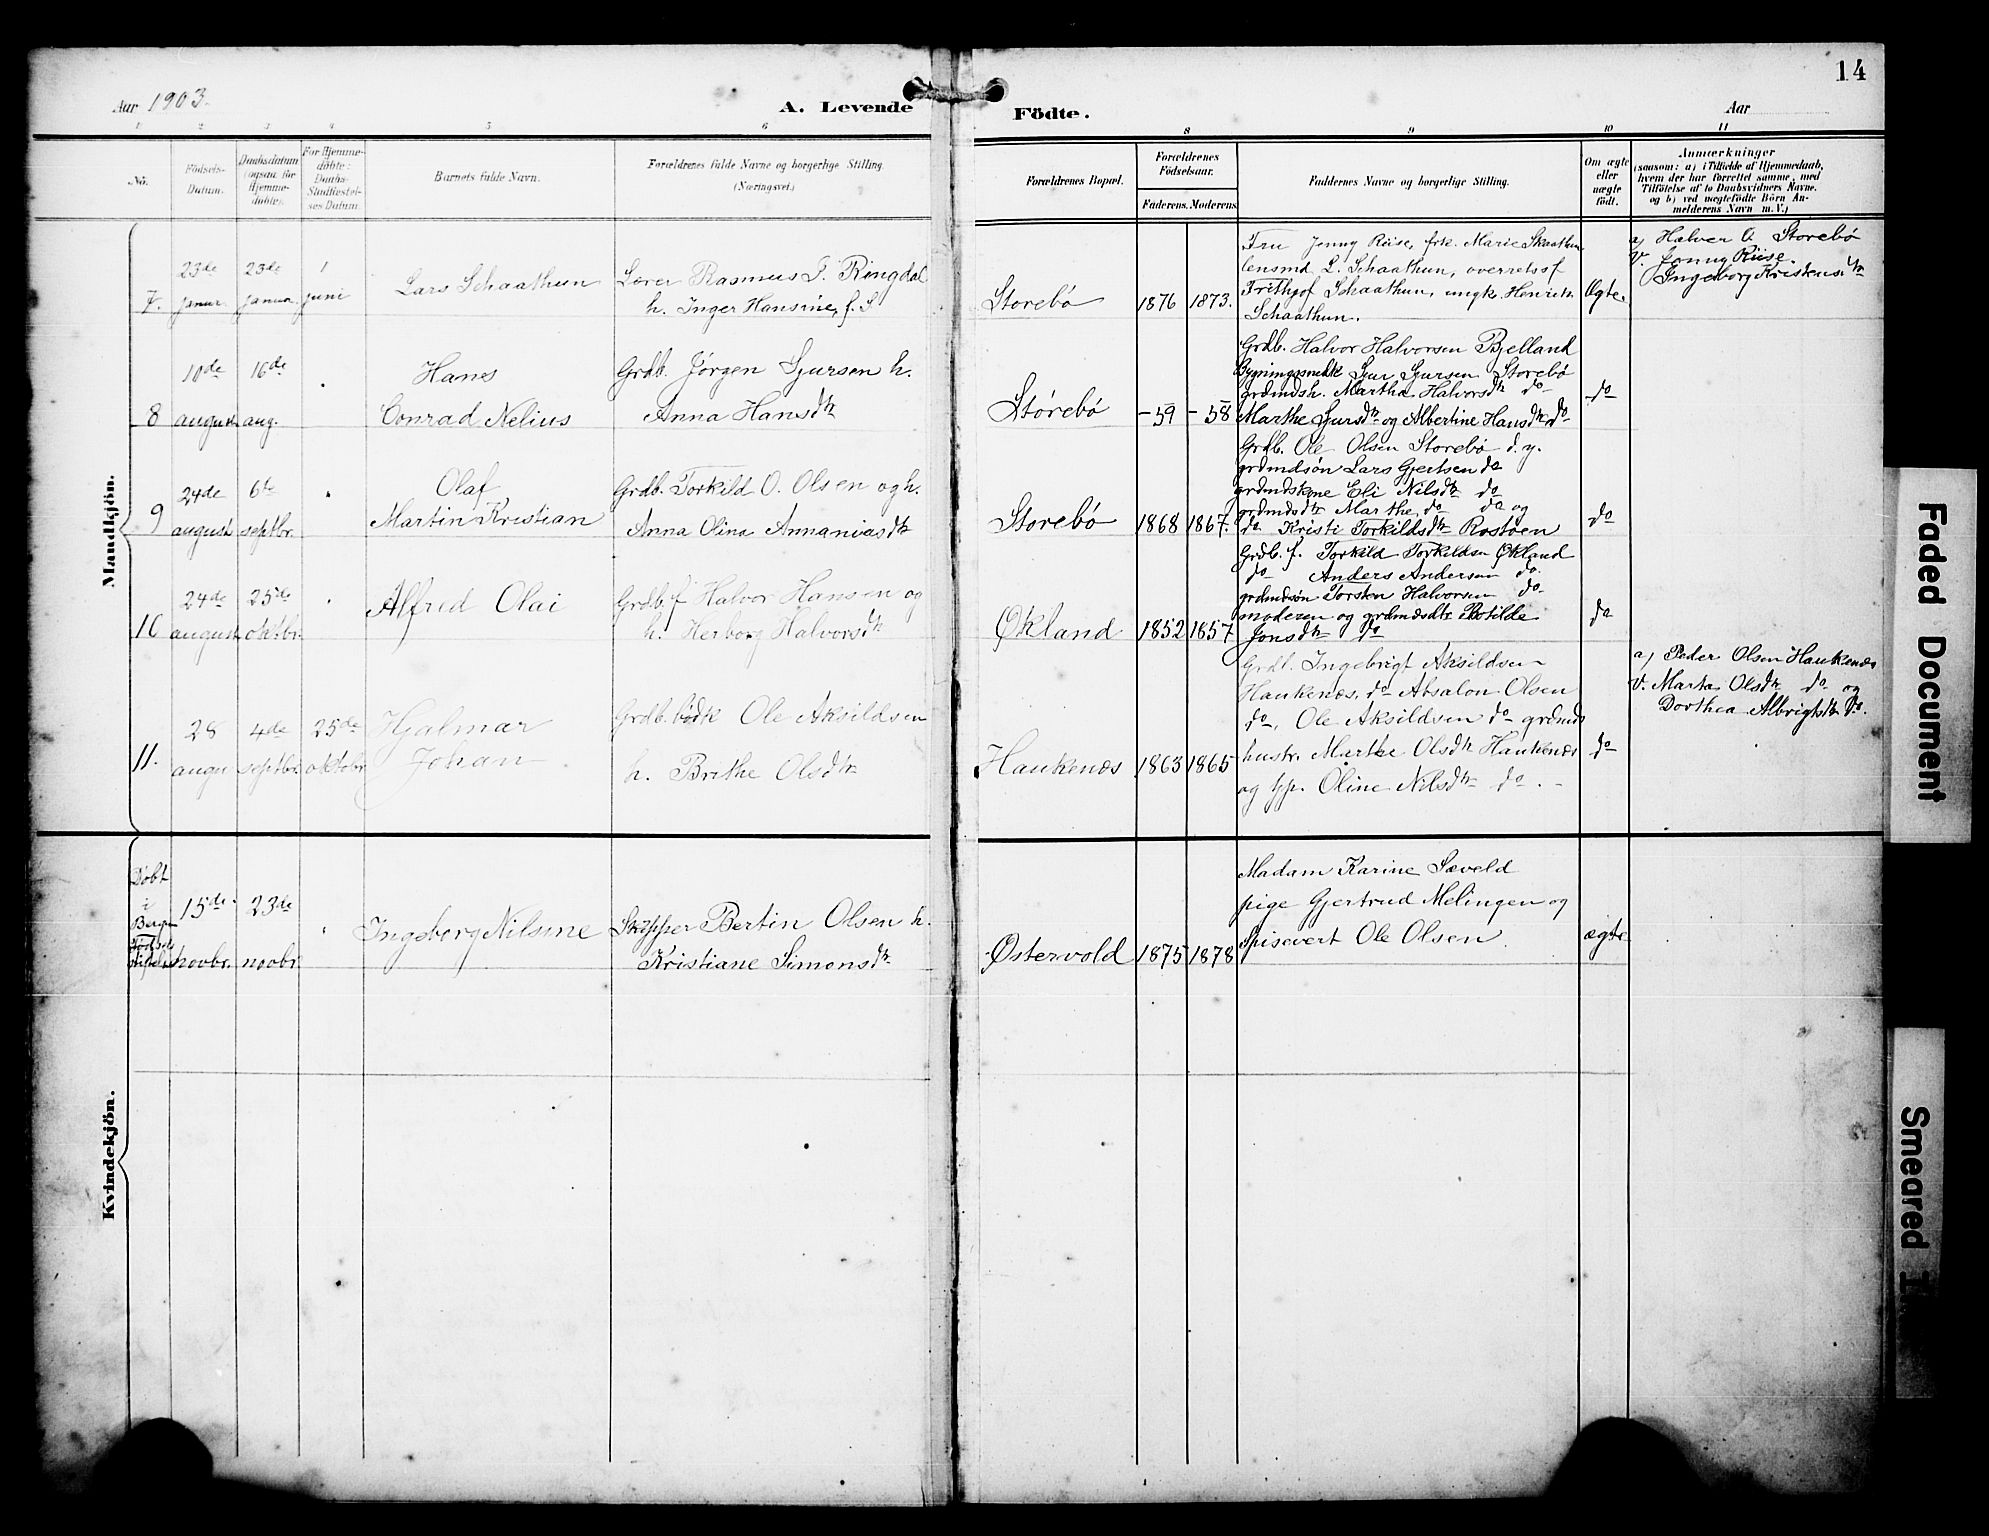 14
Aar 1903.
A. Levende Födte.
Aar
1 2 3 4 5 6 8 9 10 11
No.
Födsels-
Datum.
Daabsdatum
(ogsaa for
Hjemme-
döbte).
For Hjemme-
döbte:
Daabs-
Stadfæstel-
ses Datum.
Barnets fulde Navn.
Forældrenes fulde Navne og borgerlige Stilling.
(Næringsvei.)
Forældrenes Bopæl.
Forældrenes
Födselsaar.
Faderens. Moderens.
Faddernes Navne og borgerlige Stilling.
Om ægte
eller
uægte
födt.
Anmærkninger
(saasom: a) i Tilfælde af Hjemmedaab,
hvem der har forrettet samme, med
Tilföielse af to Daabsvidners Navne,
og b) ved uægtefödte Börn An-
melderens Navn m. V.)
Mandkjön.
7.
23de
januar
23de
januar
1
juni
Lars Schaathun
Lærer Rasmus T. Ringdal
h. Inger Hansine, f. S
Storebø
1876
1873.
Fru Jenny Riise, frk. Marie Skaathun
lensmd. L. Schaathun, overretssf
Frithjof Schaathun, ungk. Henrik
Schaathun.
Ægte.
a) Halvor O. Storebø
V. Jenny Riise.
Ingeborg Kristensdtr
8
10de
august
16de
aug.
Hans
Conrad Nelius
Grdb. Jørgen Sjursen h.
Anna Hansdtr
Størebø
-59
-58
Grdb. Halvor Halvorsen Bjelland
Bygningssnedk Sjur Sjursen Storebø
grdmdsh. Martha Halvorsdtr do
Marthe Sjursdtr og Albertine Hansdtr do
do
9
24de
august
6te
septbr.
Olaf
Martin Kristian
Grdb. Torkild O. Olsen og h.
Anna Olina Annaniasdtr
Storebø
1868
1867.
Grdb. Ole Olsen Storebø d. y.
grdmdsøn Lars Gjertsen do
grdmdskone Eli Nilsdtr do
grdmdsdtr Marthe do do og
do Kristi Torkildsdtr Rostøen
do
10
24de
august
25de
oktbr.
Alfred Olai
Grdb. f Halvor Hansen og
h. Herborg Halvorsdtr
Økland
1852
1857
Grdb. f. Torkild Torkildsen Økland
do Anders Andersen do
grdmdsøn Torsten Halvorsen do
moderen og grdmdsdtr Botilde
Jonsdtr do
do
11.
28
augu
4de
septbr.
25de
oktobr
Hjalmar
Johan
Grdb. bødk Ole Aksildsen
h. Brithe Olsdtr
Haukenæs
1863
1865
Grdb. Ingebrigt Aksildsen
Haukenæs, do Absalon Olsen
do, Ole Aksildsen do grdmds
hustr. Marthe Olsdtr Haukenæs
og pp. Oline Nilsdtr do. -
do
a) Peder Olsen Haukenæs
V. Marta Olsdtr do og
Dorthea Albrigtsdtr do.
Kvindekjön.
Døbt
i
Bergen
15de
novbr.
23de
novbr.
Ingeborg Nilsine
Skipper Bertin Olsen h.
Kristiane Simonsdtr
Østervold
1875
1878
Madam Karine Sæveld
pige Gjertrud Melingen og
Spisevert Ole Olsen.
ægte
Faded Document
Smeared